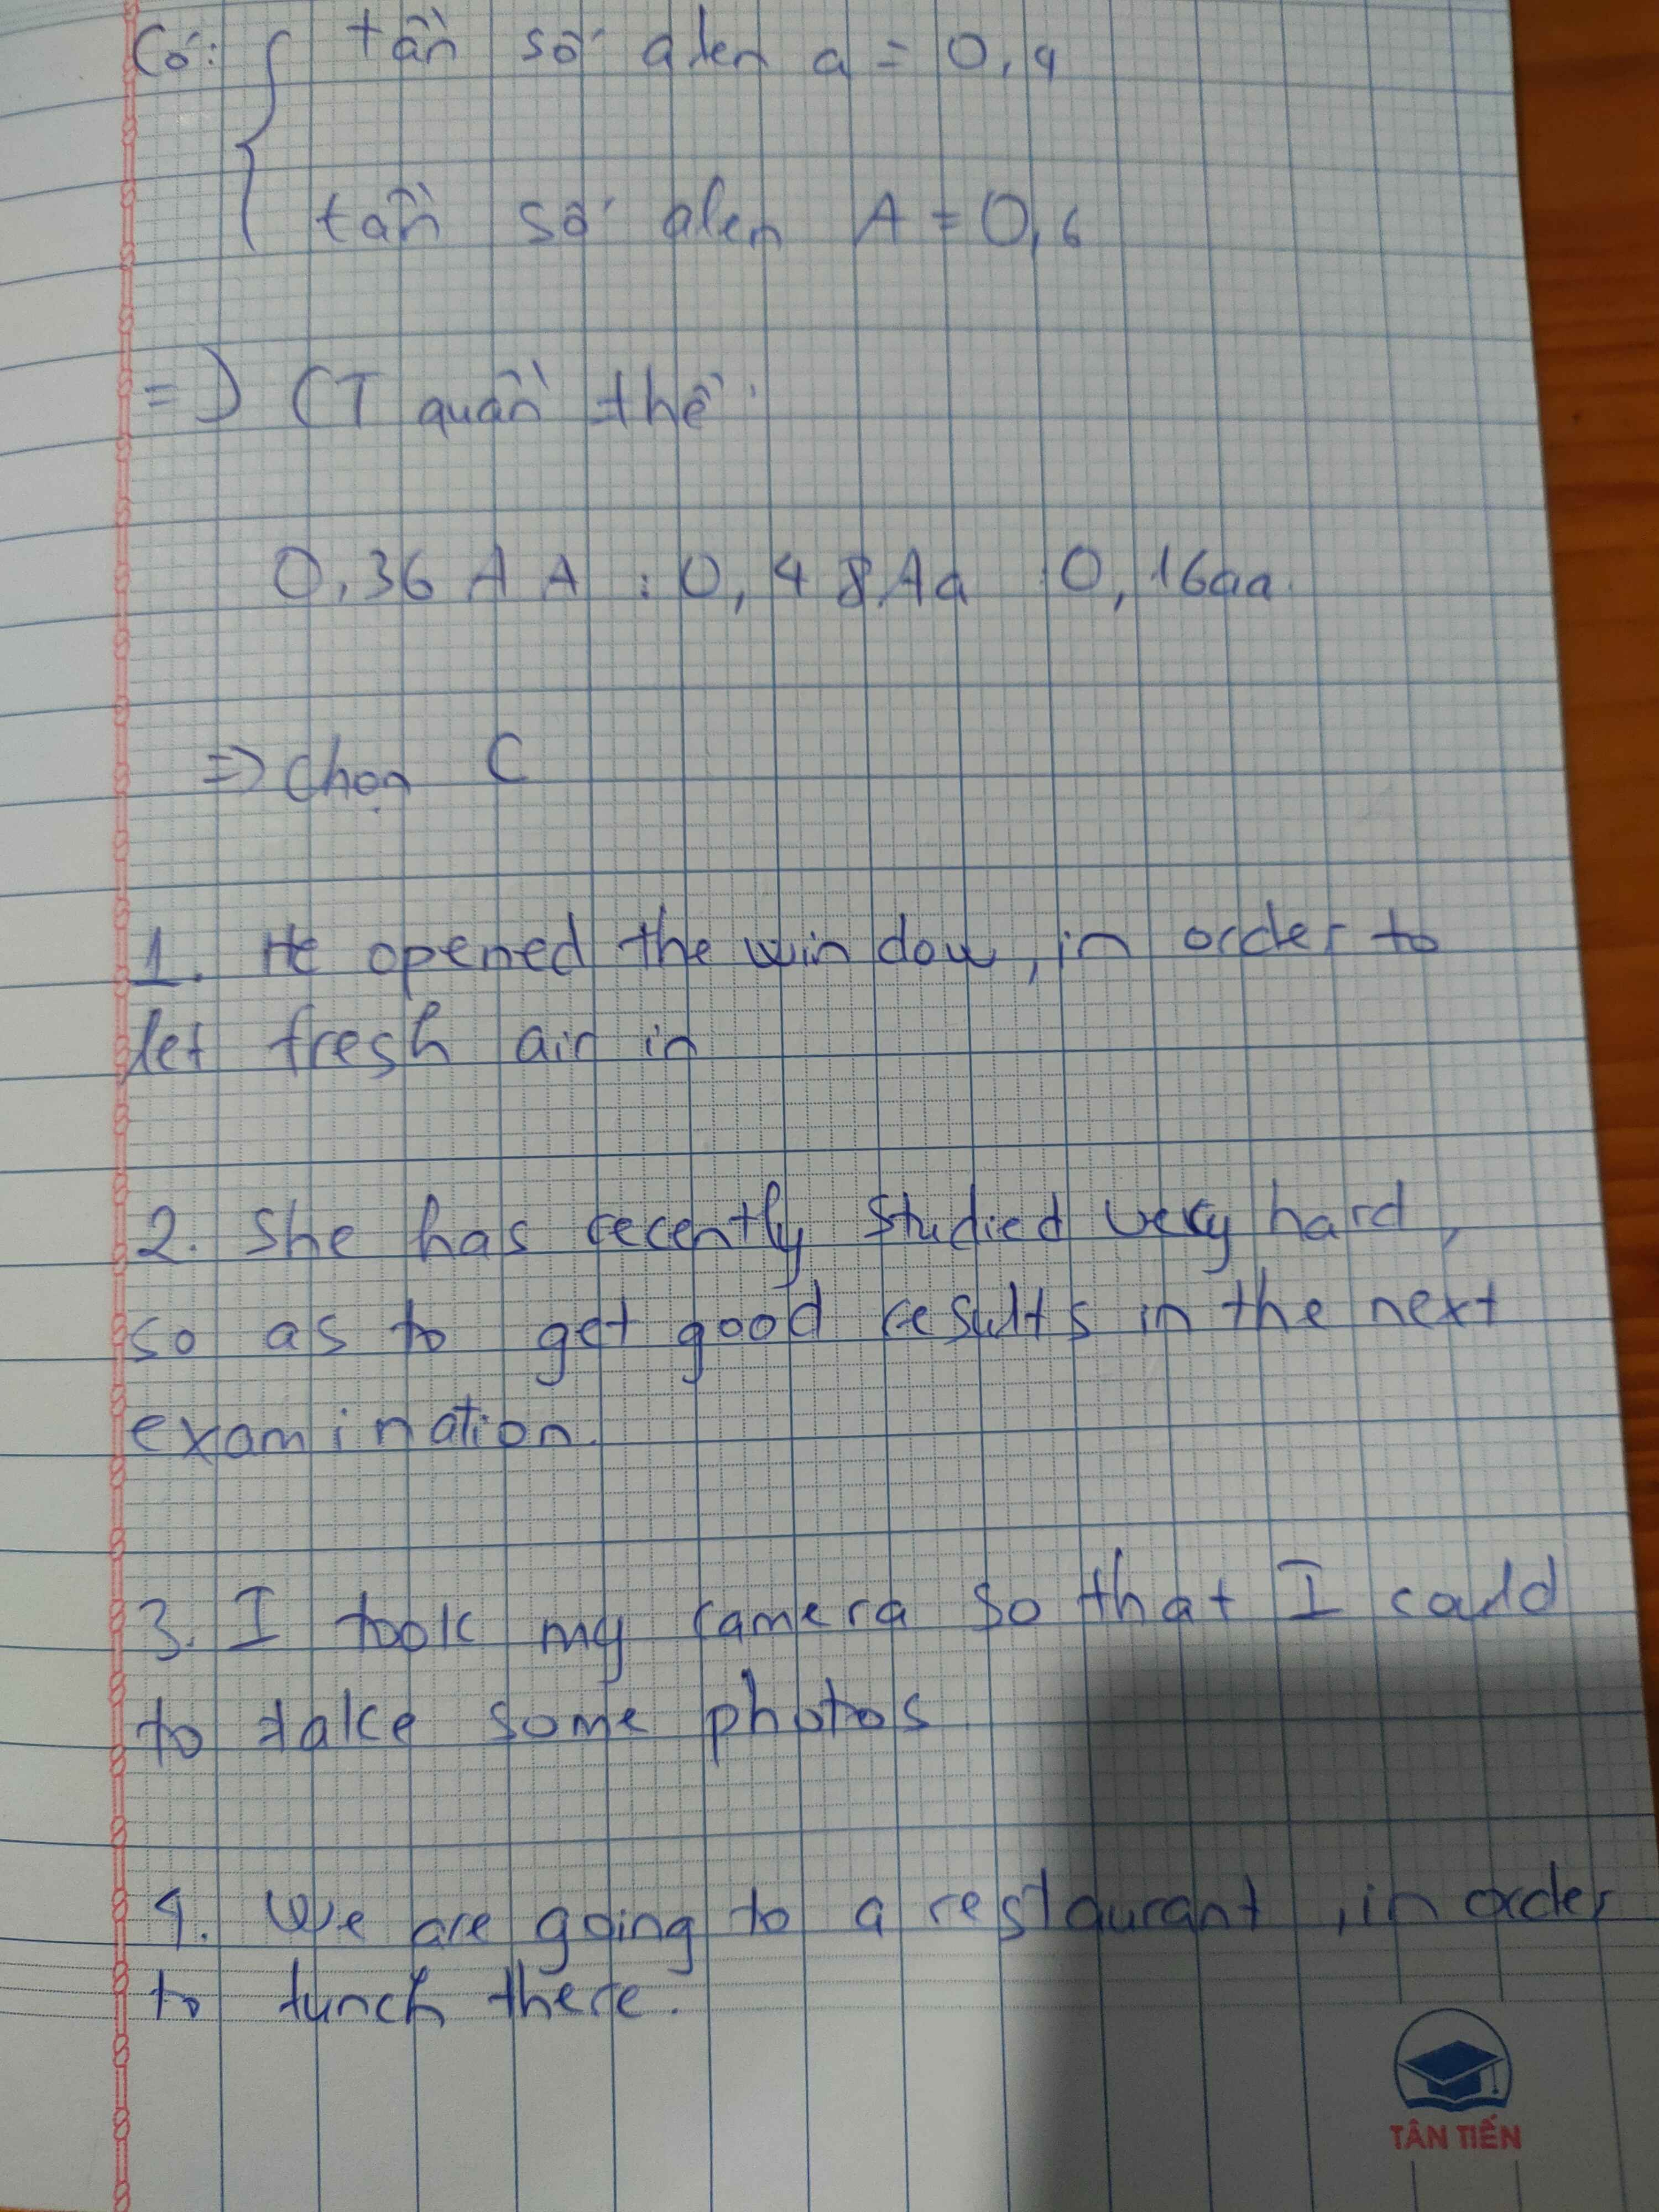 Có: { tần số alen a = 0,4
tần số alen A = 0,6
=> CT quần thể:
0,36 AA : 0,48Aa : 0,16aa.
=> Chọn C
1. He opened the window, in order to
let fresh air in
2. She has recently studied very hard,
so as to get good results in the next
examination.
3. I took my camera so that I could
to take some photos
4. We are going to a restaurant, in order
to lunch there.
TÂN TIẾN